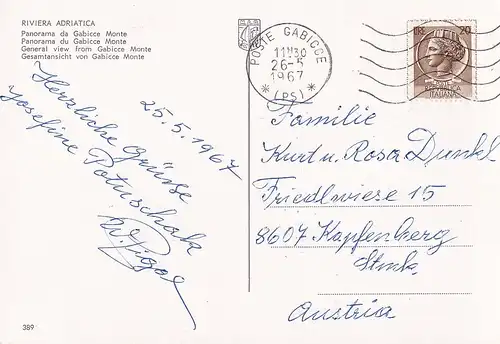 RIVIERA ADRIATICA
Panorama da Gabicce Monte
Panorama du Gabicce Monte
General view from Gabicce Monte
Gesamtansicht von Gabicce Monte
25.5.1967
Herzliche Grüße
Josefine Potuschak
389
POSTE GABICCE
11 30
26-5
1967
* (PS) *
LIRE 20
REPUBBLICA
ITALIANA
Familie
Kurt u. Rosa Dunkl
Friedlwiese 15
8607 Kapfenberg
Stmk.
Austria